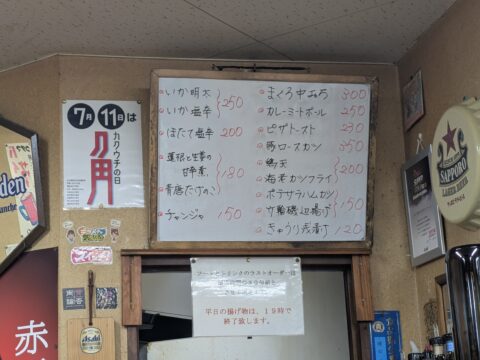 7月11日は
カクウチの日
いか明太
いか塩辛
250
ほたて塩辛 200
蓮根と生姜の
甘辛煮
青唐たけのこ
180
チャンジャ 150
まぐろ中おち 300
カレーミートボール 250
ピザトースト 230
豚ロースカツ 350
鶏天
海老カツフライ
200
ポテサラハムカツ
竹輪磯辺揚げ
150
きゅうり浅漬け 120
フードとドリンクのラストオーダーは
平日の揚げ物は、19時で
終了致します。
SAPPORO
LAGER BEER
Asahi
赤